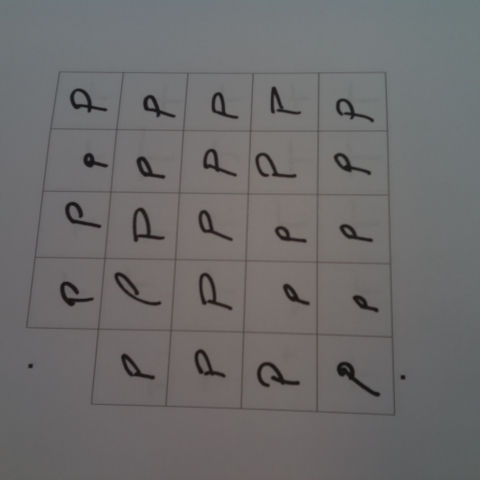 P P P P P
P P P P P
P P P P P
P P P P P
P P P P